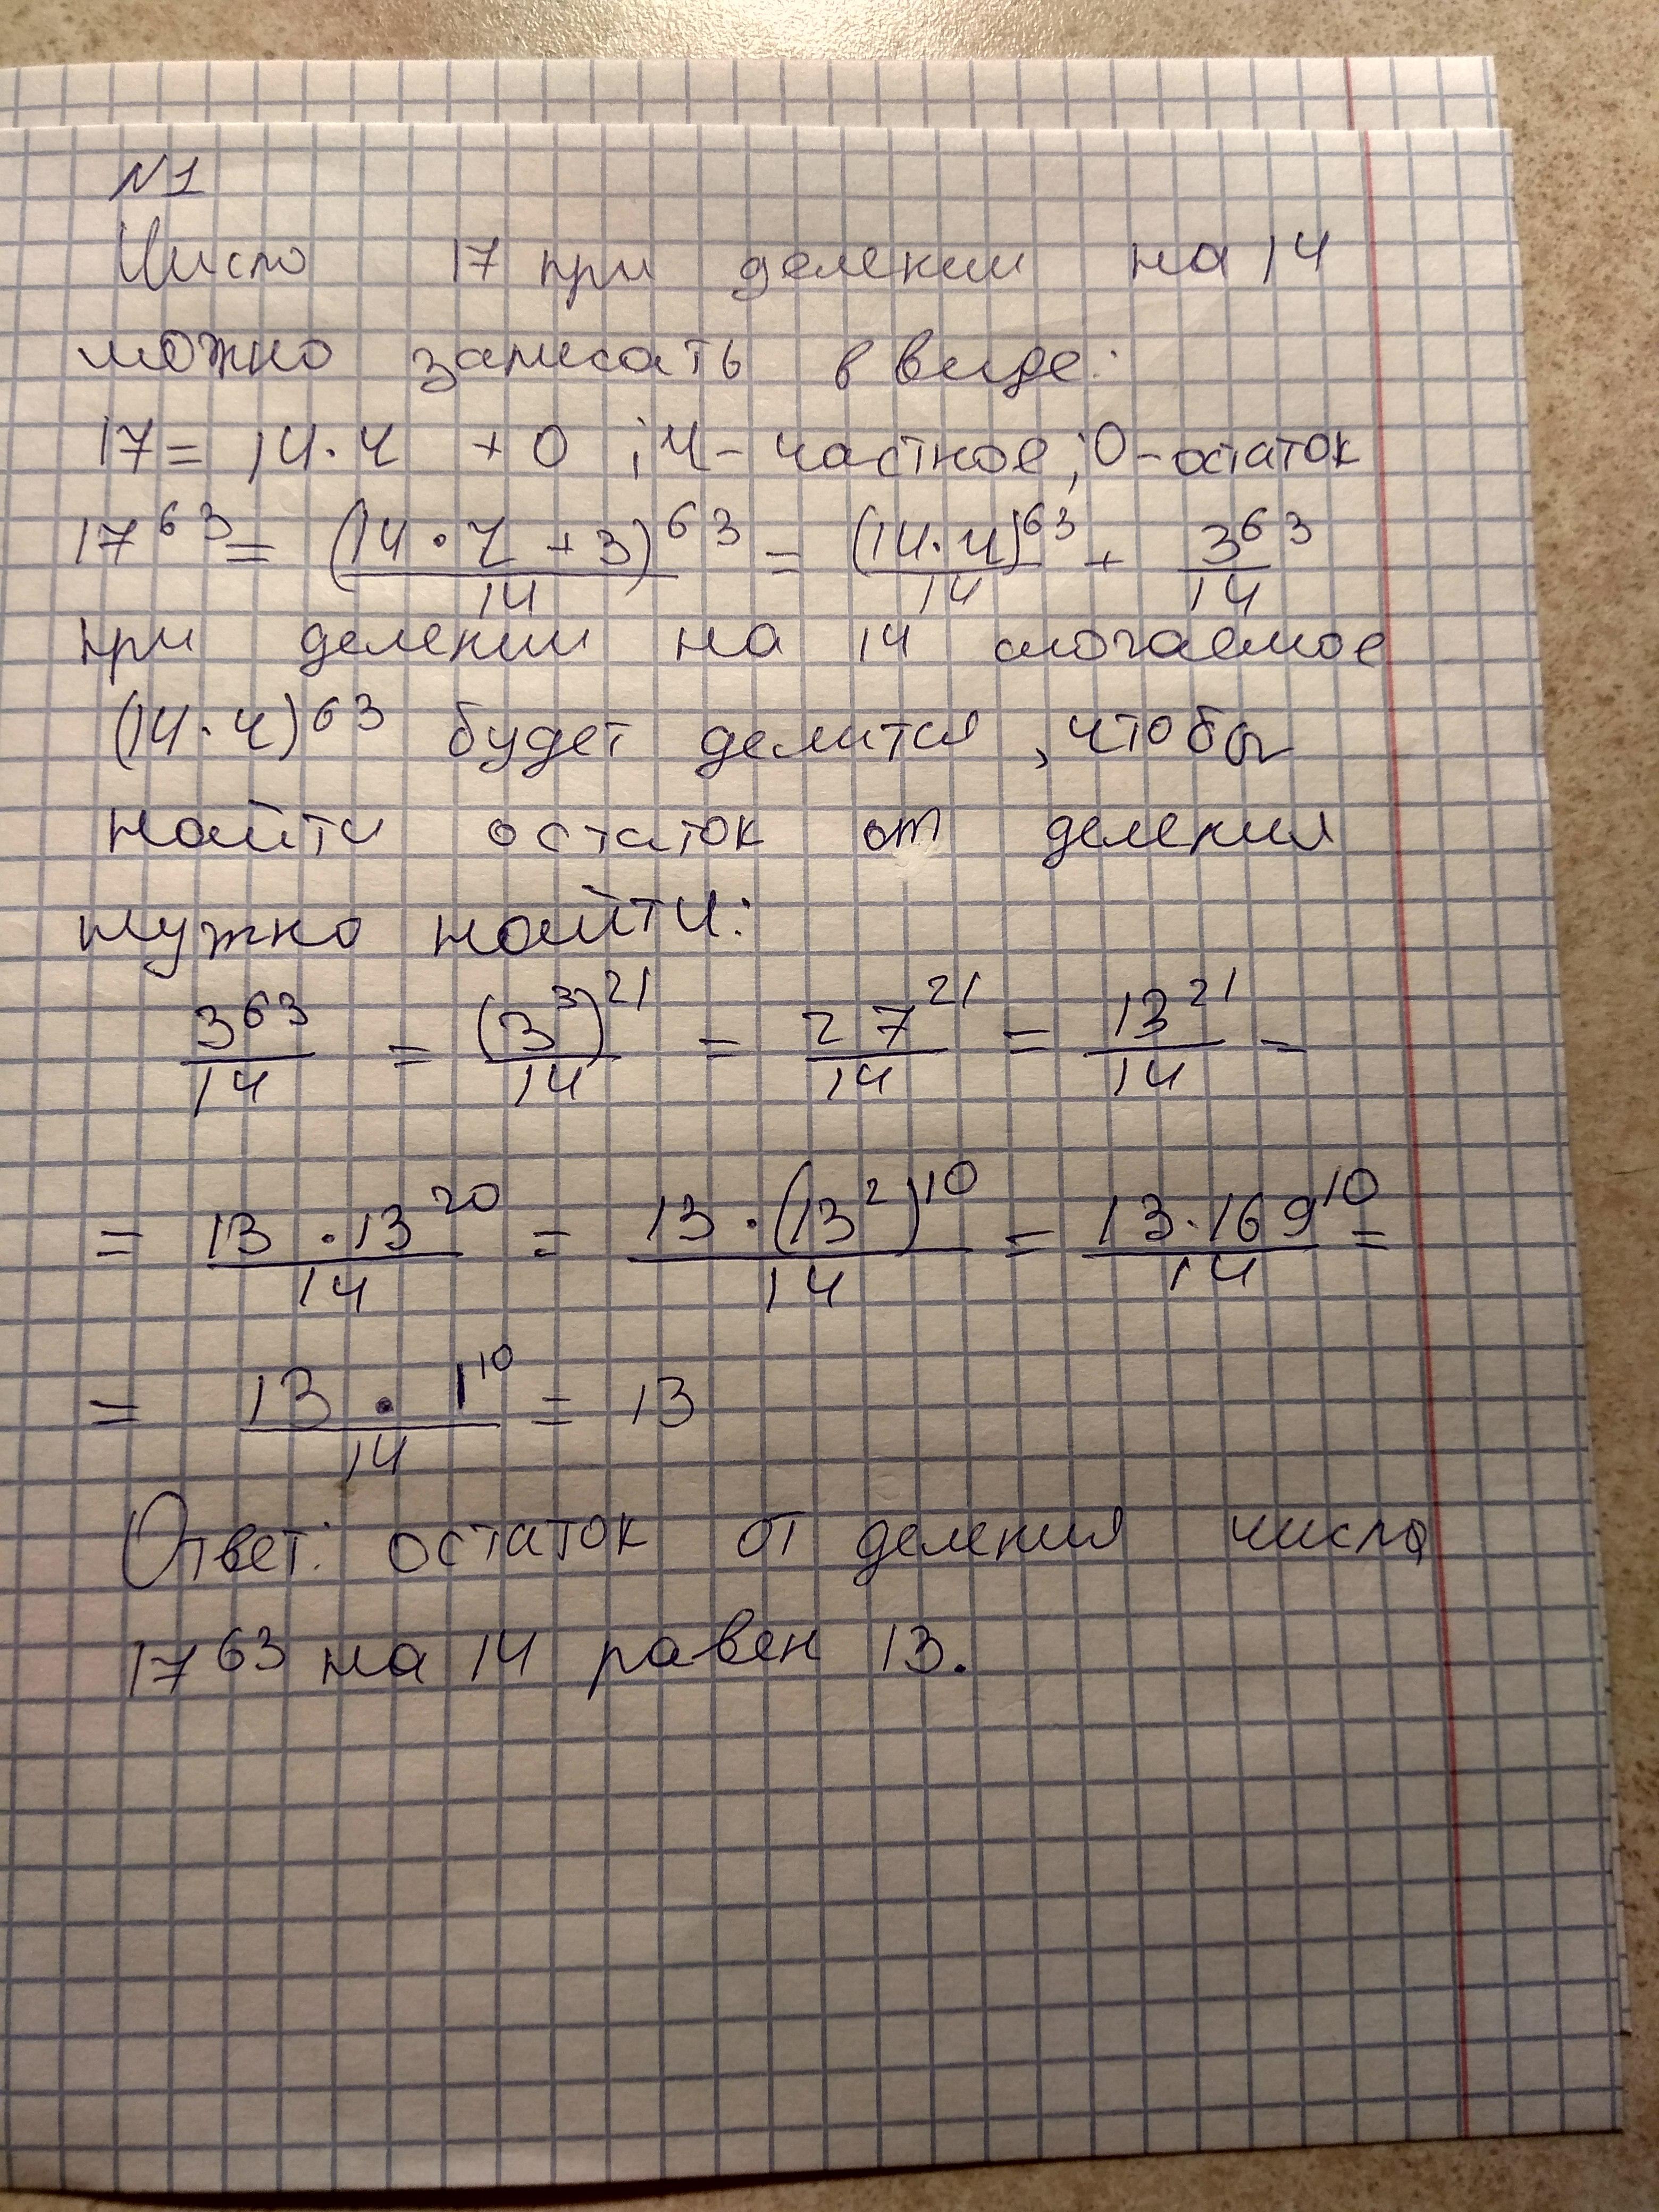 N1
Число 17 при делении на 14
можно записать в виде:
17 = 14·Ч + О ; Ч - частное ; О - остаток
17^63 = (14·Ч + 3)^63/14 = (14·Ч)^63/14 + 3^63/14
при делении на 14 слогаемое
(14·Ч)^63 будет делится , чтобы
найти остаток от деления
нужно найти:
3^63/14 = (3^3)^21/14 = 27^21/14 = 13^21/14 =
= 13·13^20/14 = 13·(13^2)^10/14 = 13·169^10/14 =
= 13·1^10/14 = 13
Ответ: остаток от деления числа
17^63 на 14 равен 13.